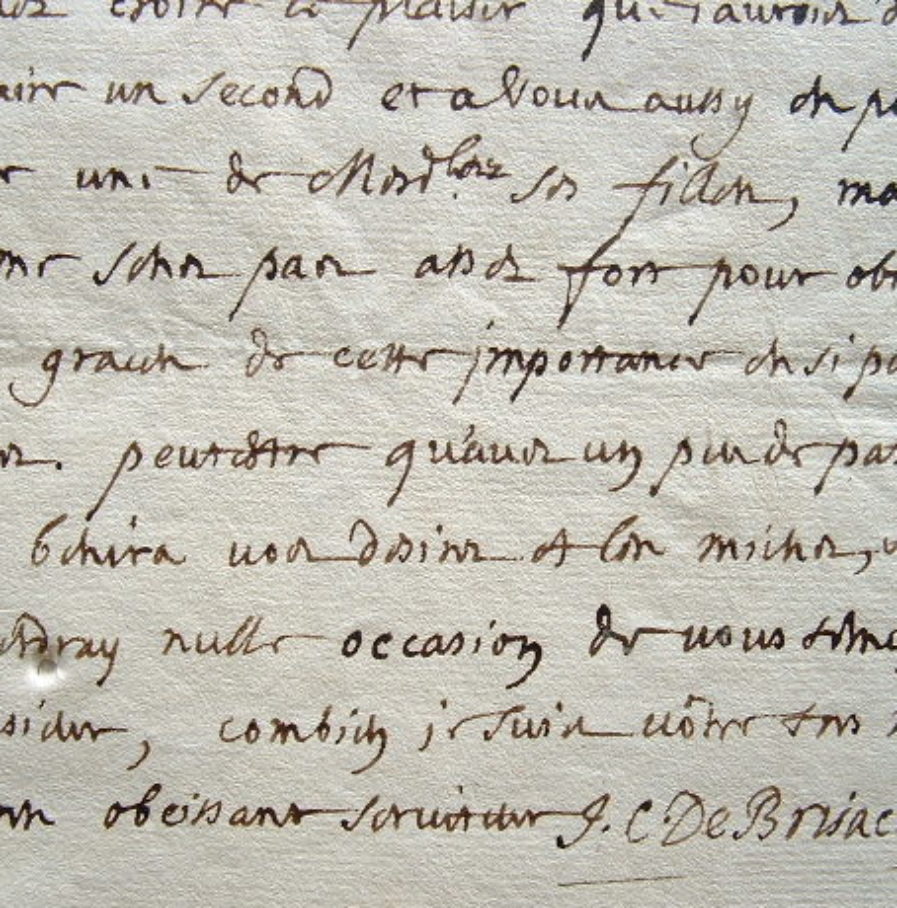 croire le plaisir que j'aurois d
aire un second et a vous aussy en p
r une de Mesd.lles ses filles, ma
me sens pas assez fort pour ob
graces de cette importance en si p
peutestre qu'avec un peu de pa
benira vos desirs et les miens,
ndray nulle occasion de vous temo
sider, combien je suis vôtre tres
obeissant serviteur J. C. De Brisac